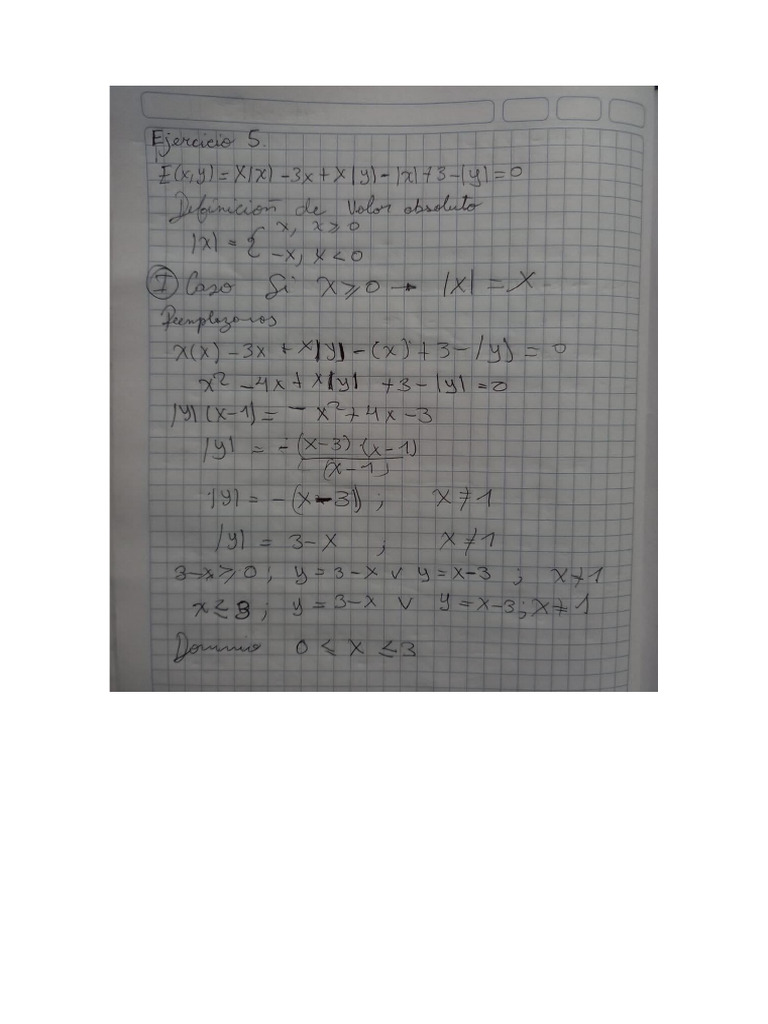 Ejercicio 5.
E(x,y) = x|x| - 3x + x|y| - |x| + 3 - |y| = 0
Definición de Valor absoluto
|x| = { x, x ≥ 0
-x, x < 0
I Caso Si x ≥ 0 → |x| = x
Reemplazamos
x(x) - 3x + x|y| - (x) + 3 - |y| = 0
x² - 4x + x|y| + 3 - |y| = 0
|y|(x-1) = - x² + 4x - 3
|y| = - (x-3)(x-1)
(x-1)
|y| = -(x-3) ; x ≠ 1
|y| = 3-x ; x ≠ 1
3-x ≥ 0 ; y = 3-x v y = x-3 ; x ≠ 1
x ≤ 3 ; y = 3-x v y = x-3 ; x ≠ 1
Dominio 0 ≤ x ≤ 3